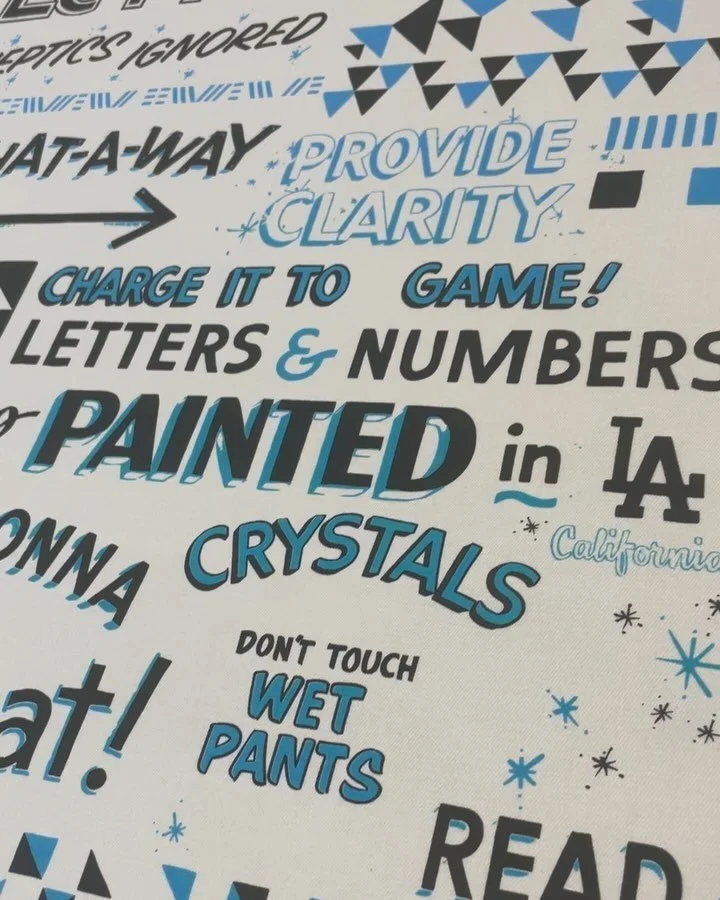 IGNORED
PROVIDE
CLARITY
CHARGE IT TO GAME!
LETTERS & NUMBERS
PAINTED in LA
California
CRYSTALS
DON'T TOUCH
WET
PANTS
READ